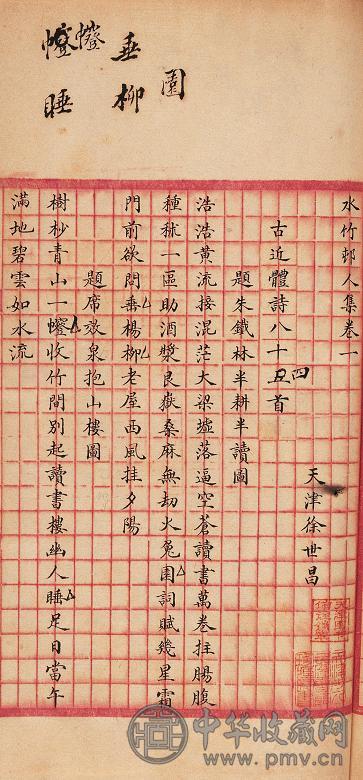 園
垂柳
睡
水竹邨人集卷一
天津徐世昌
古近體詩八十五首
四
題朱鐵林半耕半讀圖
浩浩黃流接混茫大梁墟落逼空蒼讀書萬卷拄腸腹
種秫一區助酒漿艮嶽桑麻無劫火兔園詞賦幾星霜
門前欲問垂楊柳老屋西風挂夕陽
題席效泉抱山樓圖
樹杪青山一收竹間別起讀書樓幽人睡足日當午
滿地碧雲如水流
中华收藏网
www.pmv.cn